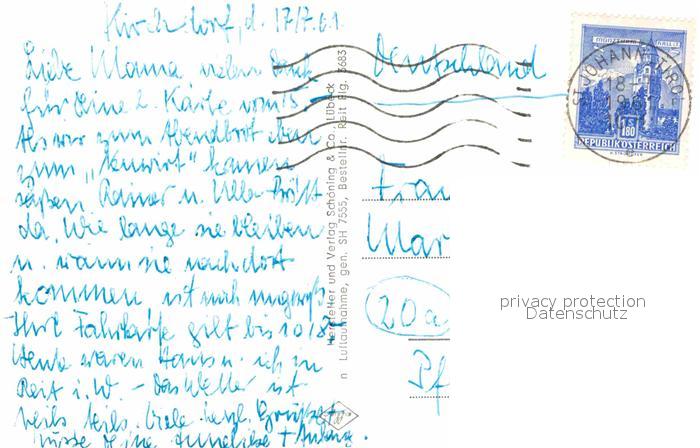 Kirchdorf, d. 17/7.61
Liebe Mama vielen Dank
für Deine l. Karte vom 15
Als wir zum Abendbrot eben
zum "wirt" kamen
saßen Rainer u. Ulla
da. Wie lange sie bleiben
u. wann sie nach dort
kommen ist noch ungewiß
Ihre Fahrkarte gilt bis 10/8
Heute waren Hans u. ich in
Reit i. W. - Das Wetter ist
teils teils. Viele herzl. Grüße
Küsse Deine Anneliese +
Hersteller und Verlag Schöning & Co., Lübeck
n Luftaufnahme, gen. SH 7555, Bestellnr. Reit Flg. 3683
Deutschland
MÜNZTURM HALL I.T.
S 1.80
REPUBLIK ÖSTERREICH
ST. JOHANN TIROL
18
Frau
Mar
20a
Pf
privacy protection
Datenschutz